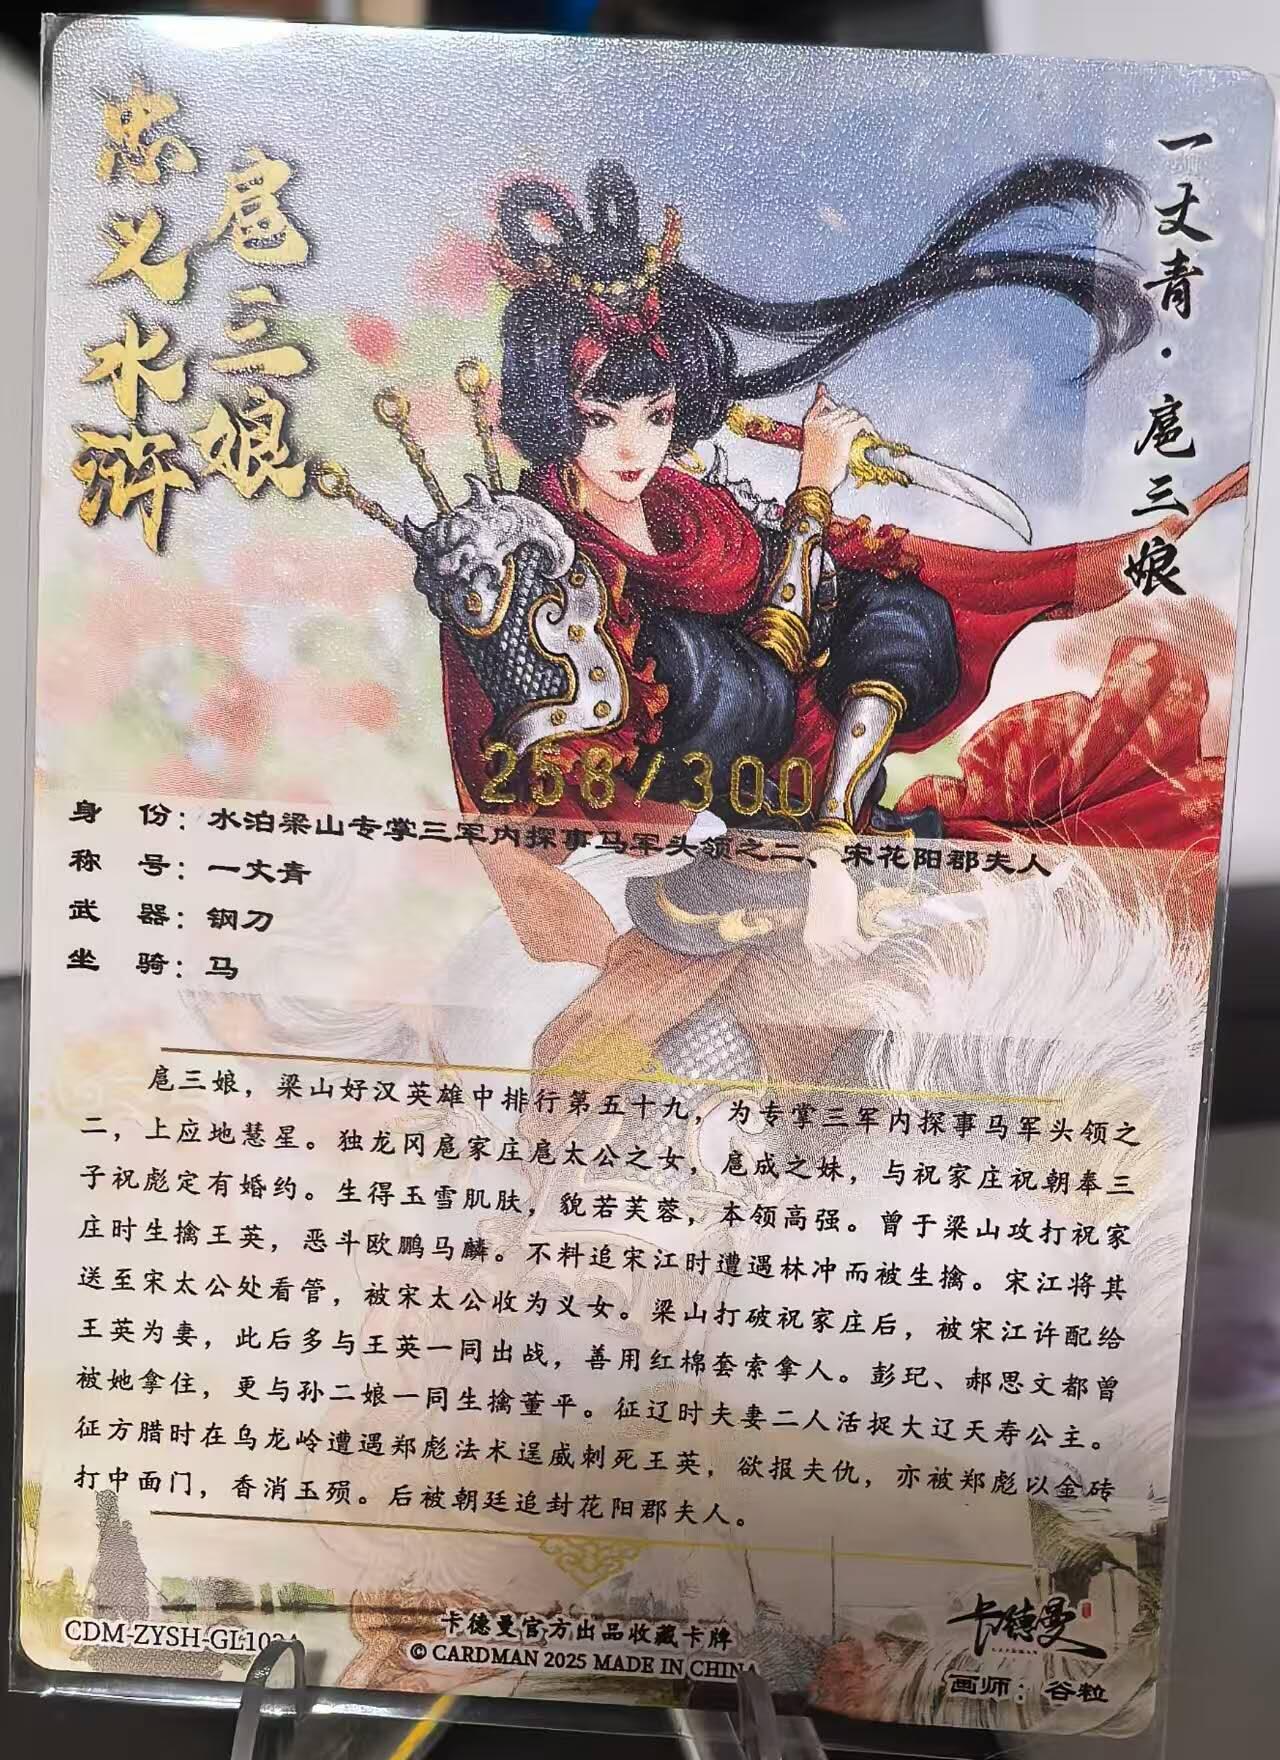 忠义水浒
扈三娘
一丈青·扈三娘
258/300
身 份：水泊梁山专掌三军内探事马军头领之二、宋花阳郡夫人
称 号：一丈青
武 器：钢刀
坐 骑：马
扈三娘，梁山好汉英雄中排行第五十九，为专掌三军内探事马军头领之
二，上应地慧星。独龙冈扈家庄扈太公之女，扈成之妹，与祝家庄祝朝奉三
子祝彪定有婚约。生得玉雪肌肤，貌若芙蓉，本领高强。曾于梁山攻打祝家
庄时生擒王英，恶斗欧鹏马麟。不料追宋江时遭遇林冲而被生擒。宋江将其
送至宋太公处看管，被宋太公收为义女。梁山打破祝家庄后，被宋江许配给
王英为妻，此后多与王英一同出战，善用红棉套索拿人。彭玘、郝思文都曾
被她拿住，更与孙二娘一同生擒董平。征辽时夫妻二人活捉大辽天寿公主。
征方腊时在乌龙岭遭遇郑彪法术逞威刺死王英，欲报夫仇，亦被郑彪以金砖
打中面门，香消玉殒。后被朝廷追封花阳郡夫人。
CDM-ZYSH-GL102A
卡德曼官方出品收藏卡牌
© CARDMAN 2025 MADE IN CHINA
卡德曼
画师：谷粒